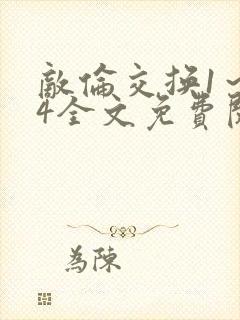 敵倫交換1～
4全文免費閱
為陳